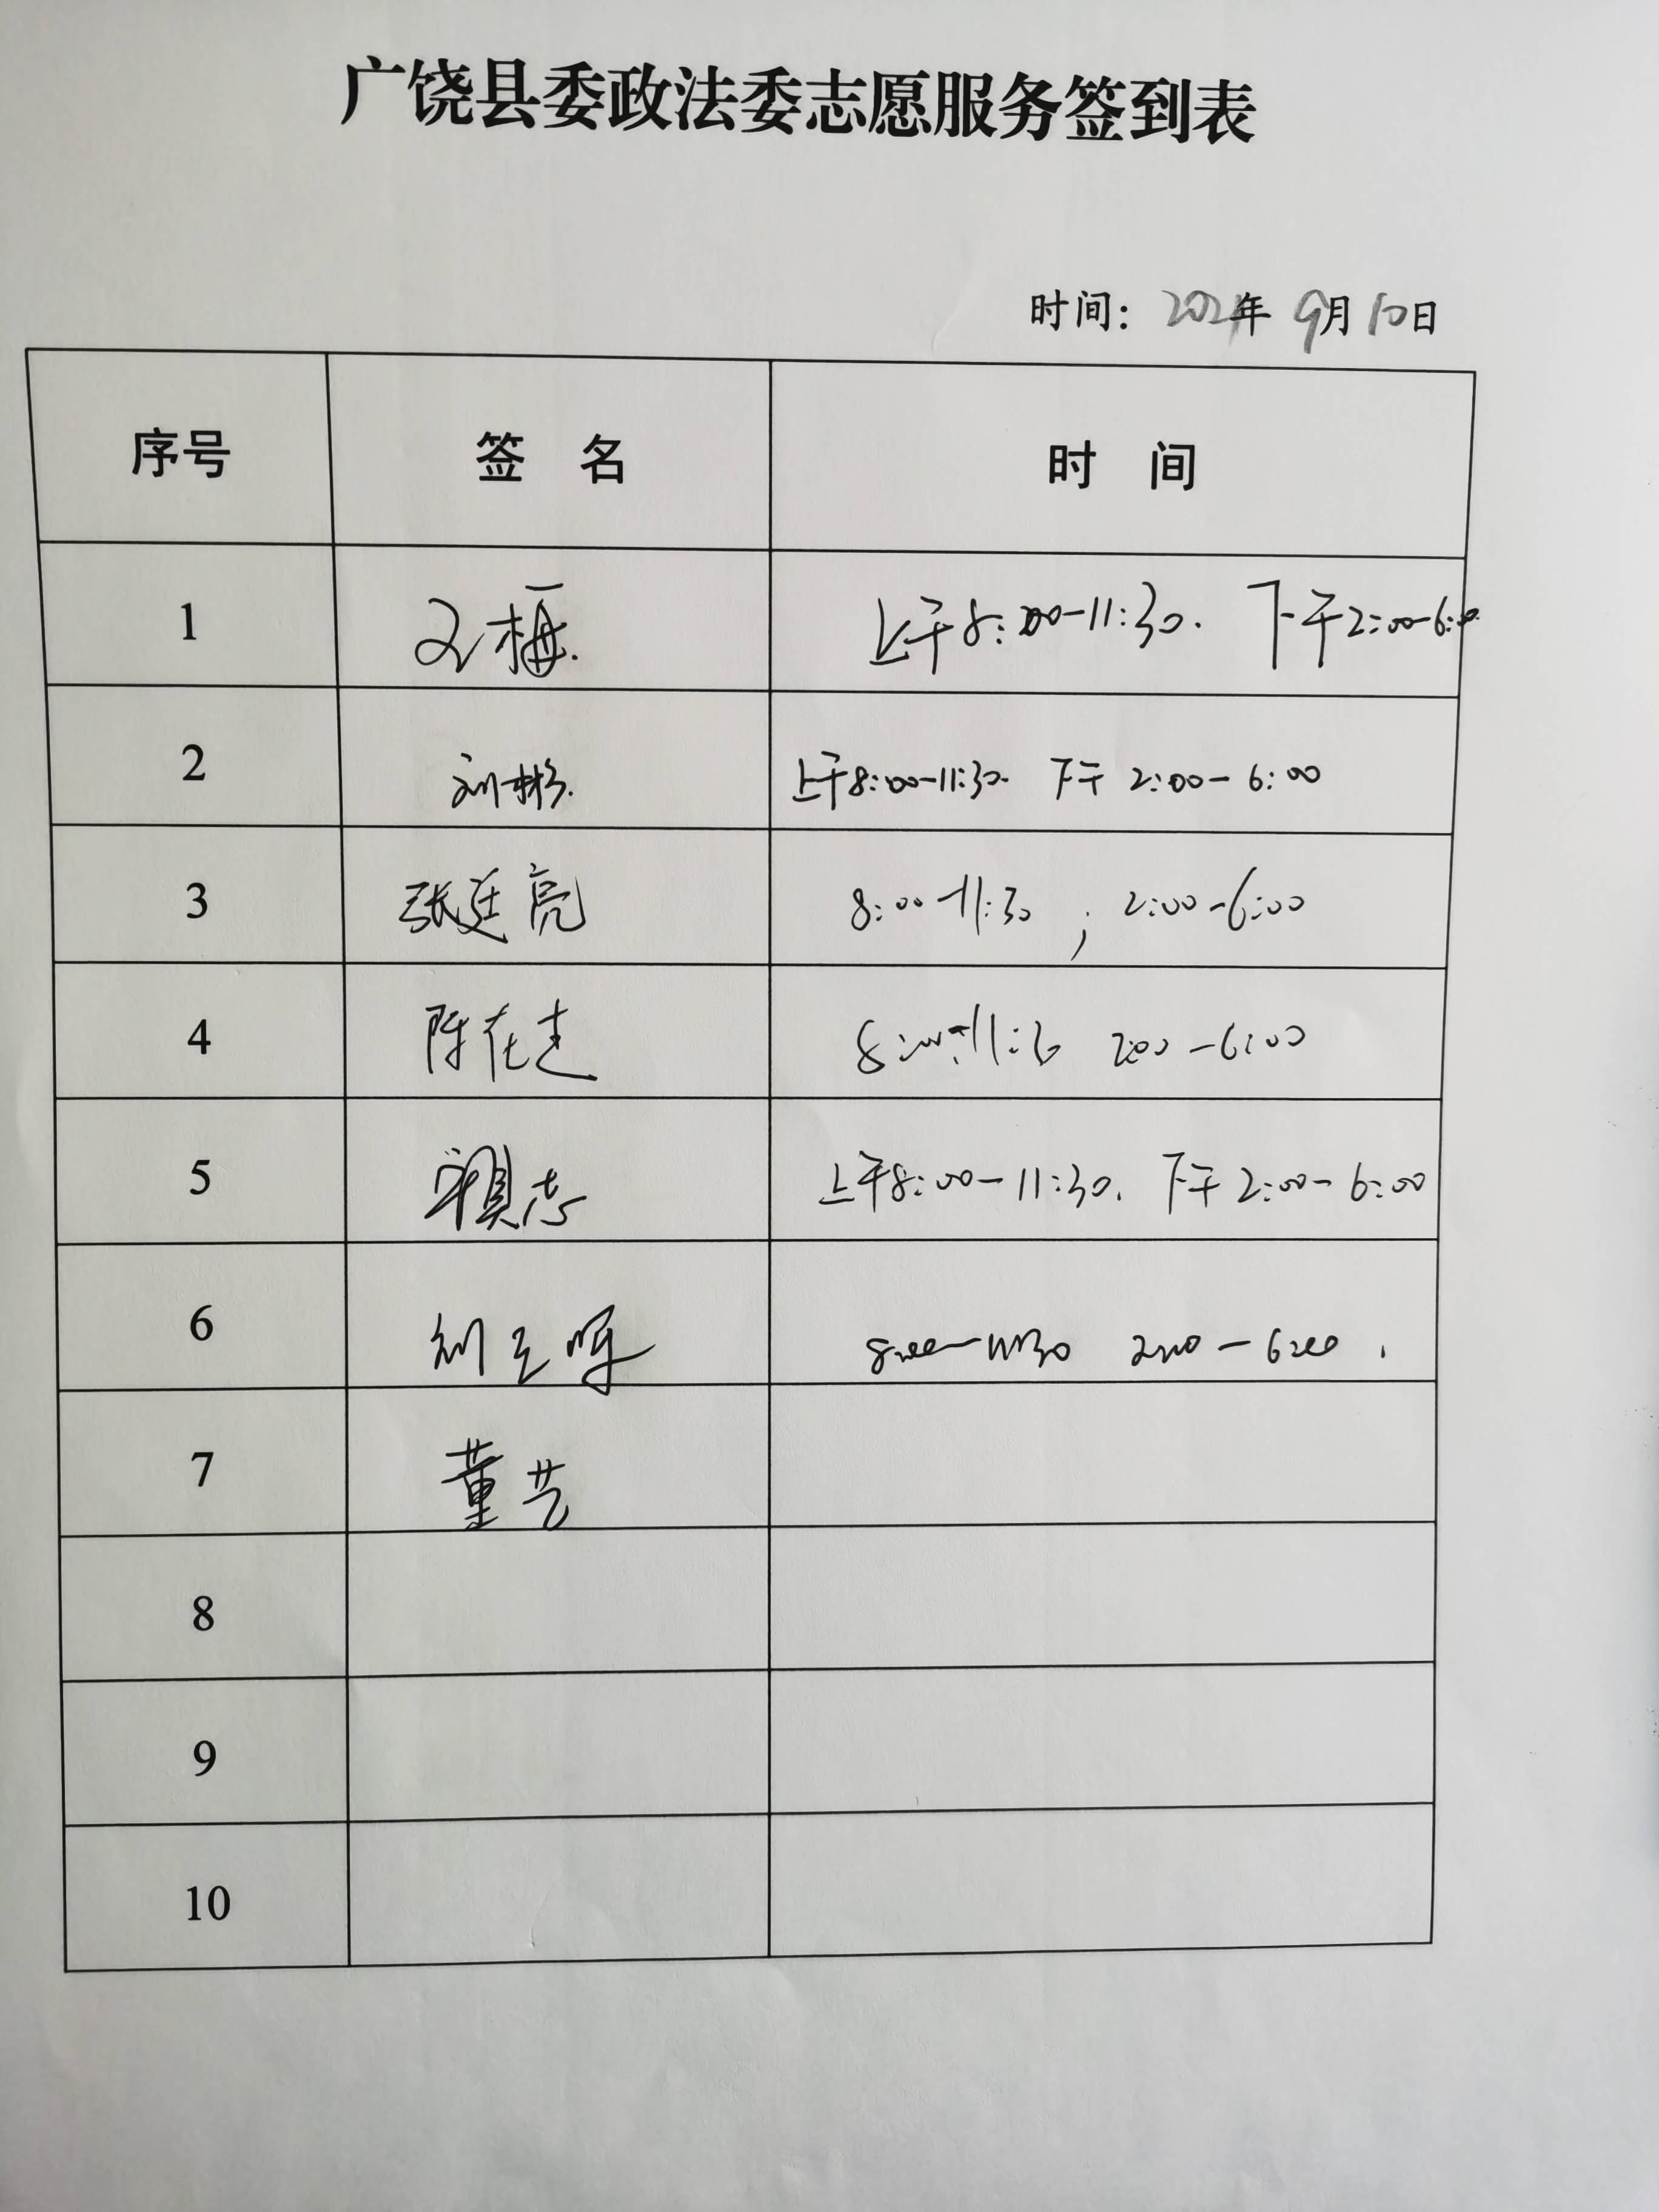 广饶县委政法委志愿服务签到表
时间：2021年9月10日
序号 签 名 时 间
1 上午8:00-11:30. 下午2:00-6:00
2 刘彬. 上午8:00-11:30. 下午 2:00-6:00
3 张廷亮 8:00-11:30 ; 2:00-6:00
4 陈在 8:00-11:30 2:00-6:00
5 上午8:00-11:30. 下午2:00-6:00
6 刘 8:00-11:30 2:00-6:00.
7 董芸
8
9
10